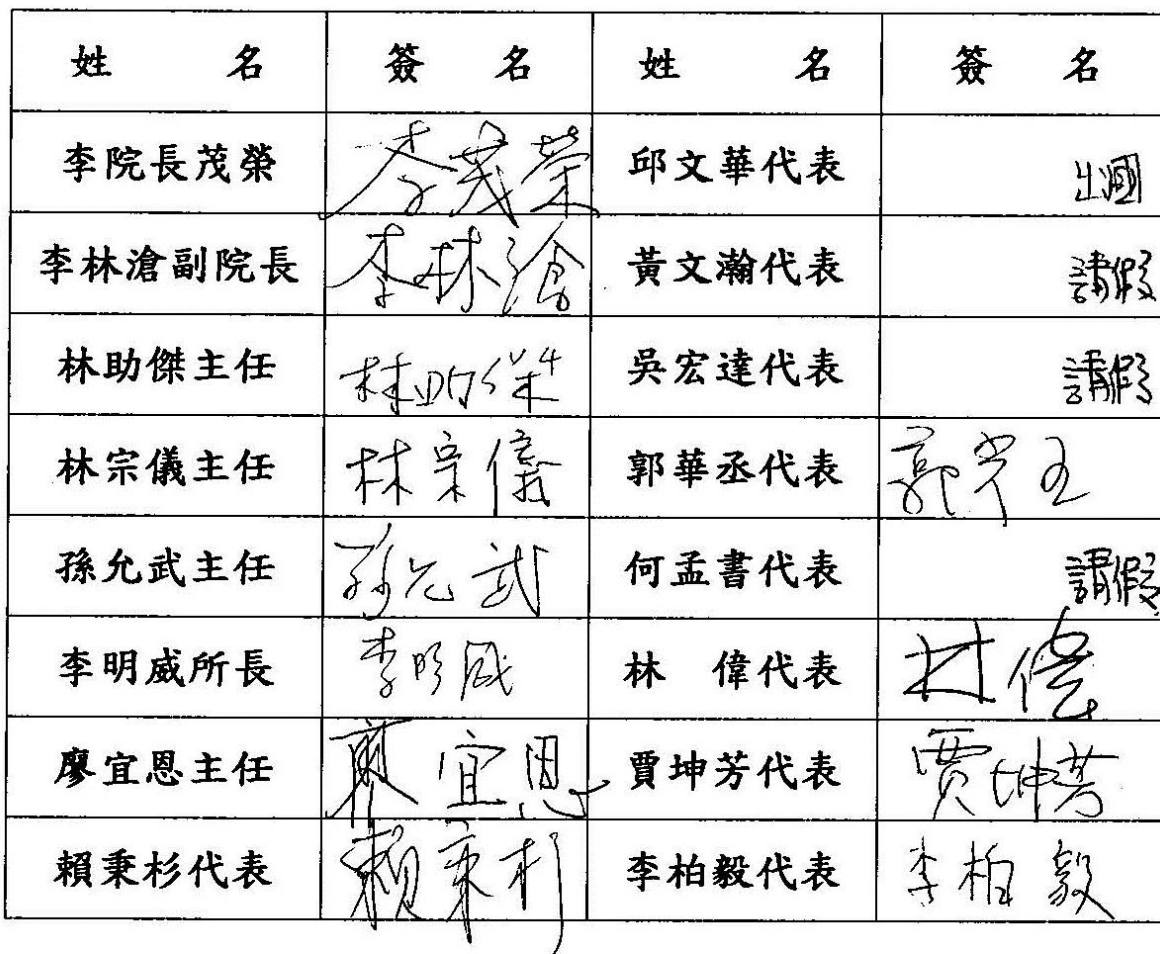 姓名 簽名 姓名 簽名
李院長茂榮 李茂荣 邱文華代表 出國
李林滄副院長 李林滄 黃文瀚代表 請假
林助傑主任 林助傑 吳宏達代表 請假
林宗儀主任 林宗儀 郭華丞代表 郭
孫允武主任 孫允武 何孟書代表 請假
李明威所長 李明威 林 偉代表 林偉
廖宜恩主任 廖宜恩 賈坤芳代表 賈坤芳
賴秉杉代表 賴秉杉 李柏毅代表 李柏毅